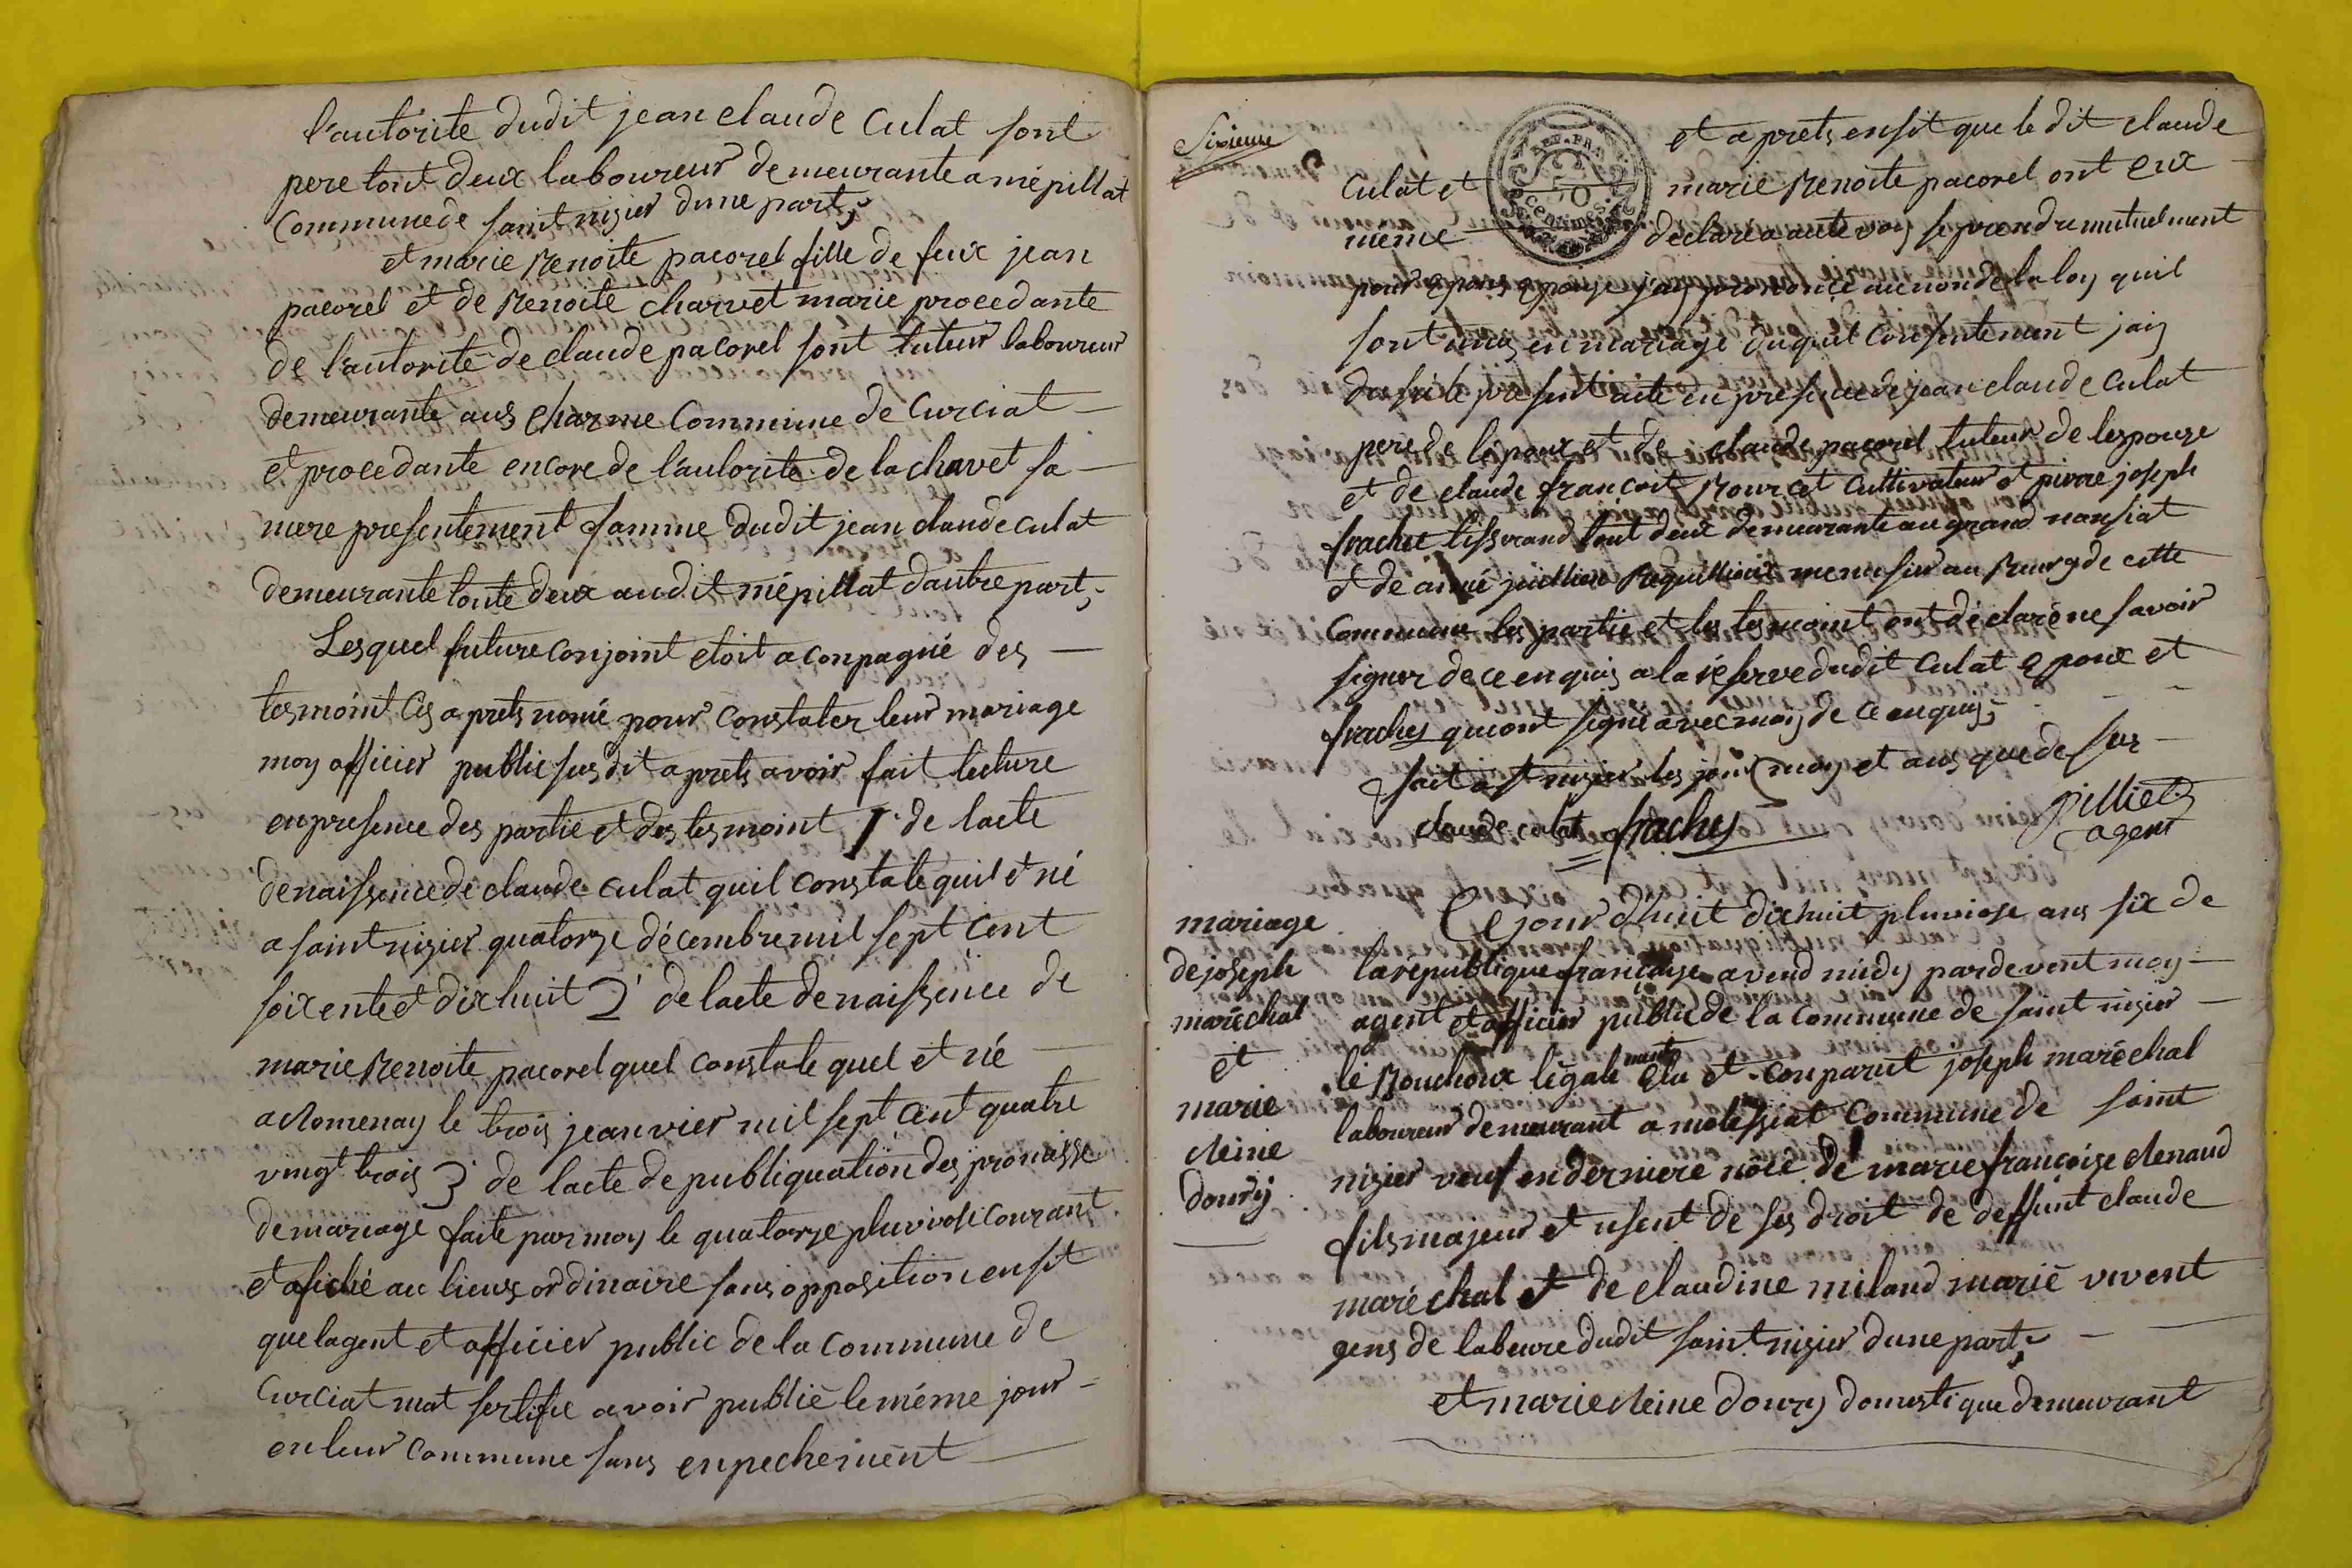 l'autorite dudit jean claude Culat sont
pere tout deux laboureur demeurante a mépillat
Commune de saint nizier dune part;
et marie Renoite pacorel fille de feux jean
pacorel et de Renoite charvet marie procedante
de l'autorité de claude pacorel sont tuteur laboureur
demeurante aus Charme Commune de Curciat
et procedante encore de l'autorite de la chavet sa
mere presentement famme dudit jean claude culat
demeurante toute deux audit mépillat dautre part;
Lesquel future conjoint etoit aconpagné des
tesmoint Cis aprets nomé pour Constater leur mariage
moy officier public susdit aprets avoir fait lecture
en presence des partie et des tesmoint 1° de lacte
de naissence de claude culat quil constate quil et né
a saint nizier quatorze décembre mil sept Cent
soixente et dixhuit 2° de lacte de naissence de
marie Renoite pacorel quel constate quel et né
a Romenay le trois jeanvier mil sept Cent quatre
vingt trois 3° de lacte de publiquation des promisse
de mariage faite par moy le quatorze pluviose courant
et afiché au lieux ordinaire sans opposition ensit
que lagent et officier public de la Commune de
Curciat mat sertifié avoir publié le méme jour
en leur Commune sans enpechement
Sixieme
et aprets ensit que le dit claude
Culat et marie Renoite pacorel ont eux
méme declaré a aute voy se prendre mutuelment
REP. FRA.
50
centimes.
pour epoux epouze jay prononcé au non de la loy quil
sont unis en mariage duquel Consentement jaiy
dresé le present acte en presence de jean claude Culat
pere de lepoux et de claude pacorel tuteur de lepouze
et de claude francoit Rourcet Cultivateur et pierre joseph
frachet tissrand tout deux demeurante au grand nansiat
et de aimé jullien Reguillieux menusier au Rourg de cette
Commune les partie et les tesmoint ont déclaré ne savoir
signer de ce enquis a la réserve dudit Culat epoux et
frachey qui ont signé avec moy de ce enquis;
fait a st nizier les jour moy et ans que desur
claude culat frachey
pilliet
agent
mariage
de joseph
maréchal
et
marie
Reine
doury
Ce jour d'huit dixhuit pluviose ans six de
la république francaise avend midy pardevent moy
agent et officier public de la Commune de saint nizier
le Rouchoux légale ment élu et Conparut joseph maréchal
laboureur demeurant a molessiat Commune de saint
nizier veuf en derniere nôce de marie françoize Renaud
fils majeur et usent de ses droit de deffunt claude
maréchal et de claudine miland marié vivent
gens de labeure dudit saint nizier dune part;
et marie Reine doury domestique demeurant